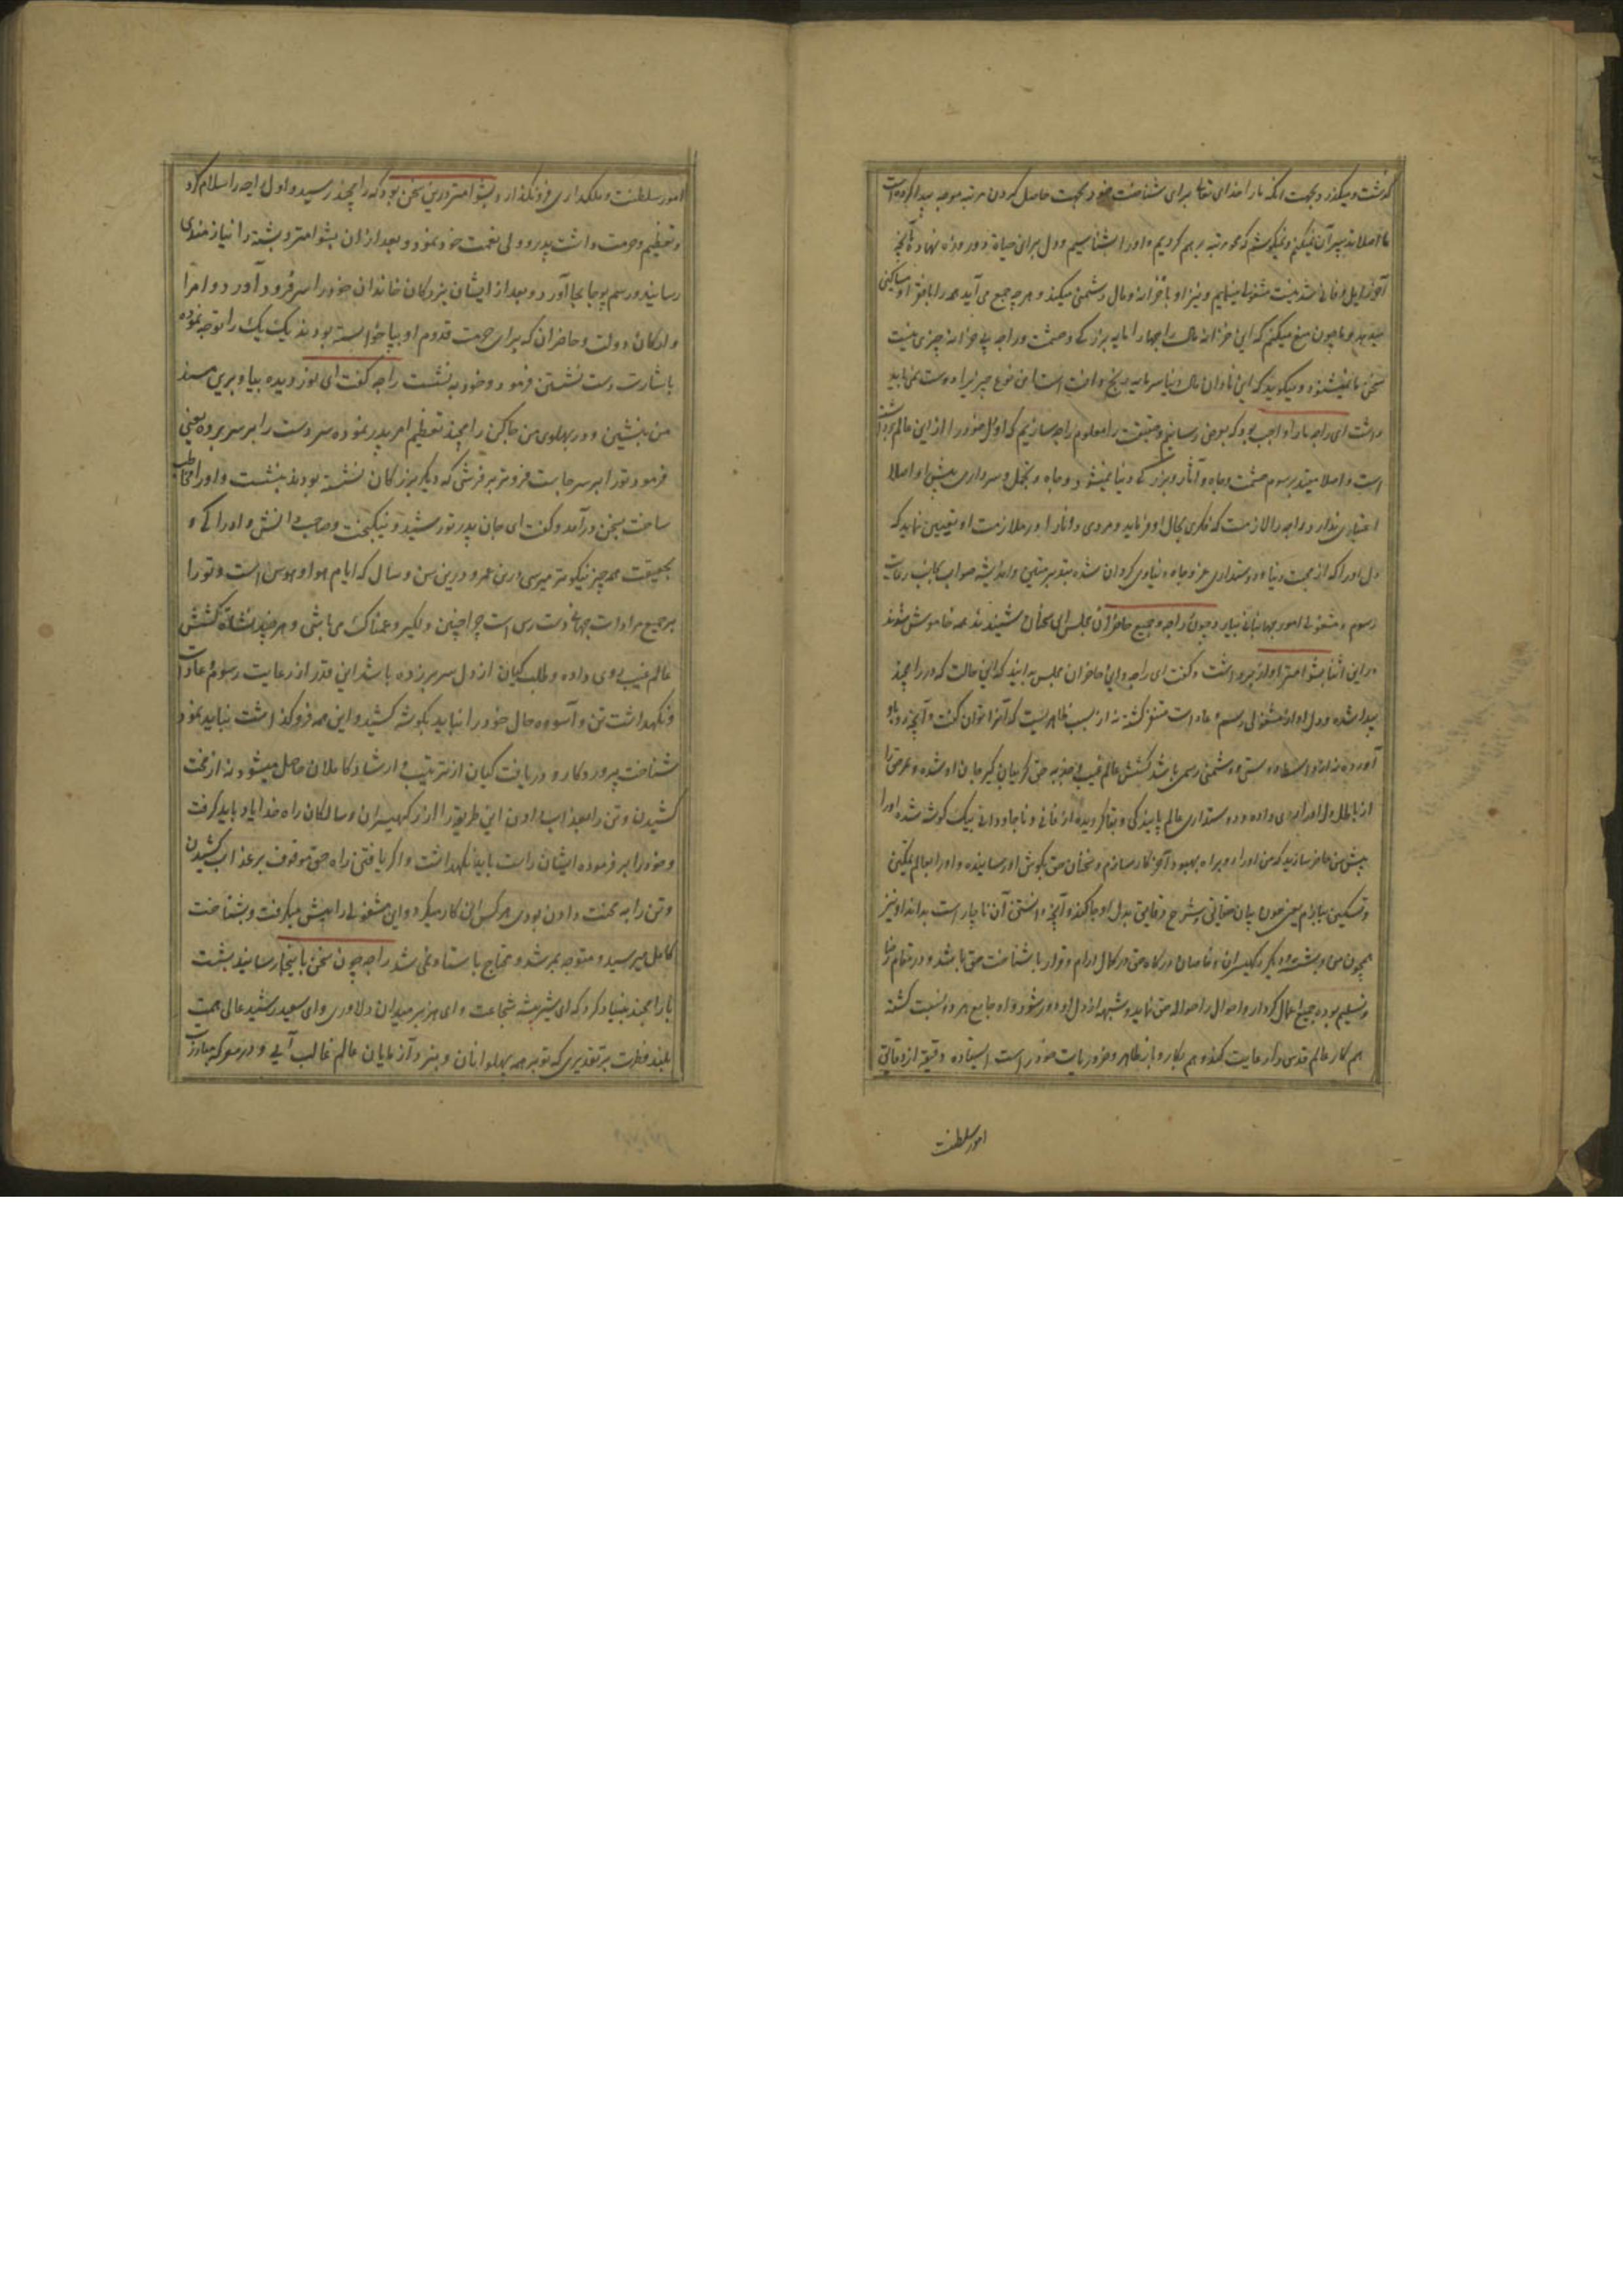 گذشت و میگذرد و بجهت آنکه ما را خدای تعالی برای شناخت خود و بجهت حاصل کردن مرتبه موجه پیدا کرده است
ما اصلا تدبیر آن نمیکنیم و نمیکوشیم که مرتبه بهم کردیم و او را بشناسیم و دل بر این حیات دو روزه نهاده بآنچه
آخر زایل و فانی شدنیست مشغولی مینمائیم و نیز او با خزانه و مال دشمنی میکند و هر چه جمع می آید همه را با فقرا و مساکین
میدهد و ما چون منع میکنیم که این خزانه و مال راجها را مایه بزرگی و حشمت و راجه بی خزانه چیزی نیست
سخن ما نمیشنود و میگوید که این نادان مال دنیا سرمایه رنج و آفت است این نوع چیز را دوست نمی باید
داشت ای راجه ما را واجب بود که بعرض رسانیم و حقیقت را معلوم راجه سازیم که اول خود را از این عالم برداشته
است و اصلا مقید برسوم حشمت و جاه و آثار بزرگی دنیا نمیشود و جاه و تجمل و سرداری پیش او اصلا
اعتباری ندارد و راجه را لازمست که فکری بحال او فرماید و مردی دانا را در ملازمت او تعیین نماید که
دل او را که از محبت دنیا و دوستداری عز و جاه دنیاوی گردان شده بتدبیر متین و اندیشه صواب بجانب رعایت
رسوم و مشغولی امور جهانبانی بیارد چون راجه و جمیع حاضران مجلس این سخنان شنیدند همه خاموش شدند
در این اثنا بشوامتر آواز برداشت و گفت ای راجه و ای حاضران مجلس بدانید که این حالت که در رامچندر
پیدا شده و دل او از مشغولی رسم و عادات متنفر گشته نه از سبب ظاهریست که آنرا توان گفت و آنچه رو باو
آورده نه از واسطه دوستی و دشمنی رسمی باشد کشش عالم غیب و جذبه حق گریبان گیر جان او شده و عرصه را
از باطل دل او را بری داده و دوستداری عالم پایندگی و بقا گردیده از فانی و ناجاودانی بیک گوشه شده او را
پیش من حاضر سازید که من او را رو براه بهبود آخر کار سازم و سخنان حق بگوش او رسانیده و او را بعالم تمکین
و تسکین بیارم یعنی چون بیان حقایق و شرح دقایق بدل او جا کند و آنچه دانستن آن ناچار است بداند او نیز
همچون من و بشسته و دیگر رکهیسران و خاصان درگاه حق در کمال آرام و قرار با شناخت حق باشد و در مقام رضا
و تسلیم بوده جمیع اعمال کردار و احوال را حواله حق نماید و شبهه از دل او دور شود و او جامع هر دو نسبت گشته
هم کار عالم قدس را رعایت کند و هم بکار و بار ظاهر و ضروریات خود راست ایستاده دقیقه از دقایق
امور سلطنت
امور سلطنت و ملکداری فرو نگذارد بشوامتر درین سخن بود که رامچندر رسید و اول راجه را سلام کرد
و تعظیم و حرمت داشت پدر و ولی نعمت خود نمود و بعد از ان بشوامتر و بشسته را نیازمندی
رسانید و رسم پوجا بجا آورد و بعد از ایشان بزرگان خاندان خود را سر فرود آورد و امرا
و ارکان دولت و حاضران که برای حرمت قدوم او بپا خواسته بودند یک یک را توجه نموده
باشارت دست نشستن فرمود و خود نه نشست راجه گفت ای نور دیده بیا و برین مسند
من بنشین و در پهلوی من جا کن رامچندر تعظیم امر پدر نموده سر و دست را بر سر برده یعنی
فرمود تو را بر سر جاست فروتر بر فرشی که دیگر بزرگان نشسته بودند بنشست و او را مخاطب
ساخت بسخن درآمد و گفت ای جان پدر تو رشید و نیکبخت و صاحب دانش و ادراکی و
بحقیقت همه چیز نیکو تر میرسی درین عمر و درین سن و سال که ایام هوا و هوس است و تو را
بر جمیع مرادات جهانی دست رسی است چرا چنین دلگیر و غمناک می باشی و هر چند نشاة کشش
عالم غیب روی داده و طلب گیان از دل سر برزده باشد این قدر از رعایت رسوم عادات
و نگهداشت تن و آسوده حال خود را نباید بگوشه کشید و این همه فرو گذاشت نباید نمود
شناخت پروردگار و دریافت گیان از تربیت و ارشاد کاملان حاصل میشود نه از محنت
کشیدن و تن را بعذاب دادن این طریق را از رکهیسران و سالکان راه خدا یاد باید گرفت
و خود را بر فرموده ایشان راست باید نگهداشت و اگر یافتن راه حق موقوف بر عذاب کشیدن
و تن را به محنت دادن بودی هر کس این کار میکرد و این مشغولی را پیش میگرفت و بشناخت
کامل میرسید و متوجه نمیشد و محتاج باستاد نمی شد راجه چون سخن باینجا رسانید بشست
با رامچندر بنیاد کرد که ای شیر بیشه شجاعت و ای هزبر میدان دلاوری و ای سعید رشید عالی همت
بلند فطرت بر تقدیری که تو بر همه پهلوانان و نبرد آزمایان عالم غالب آیی و در معرکه مبارزت